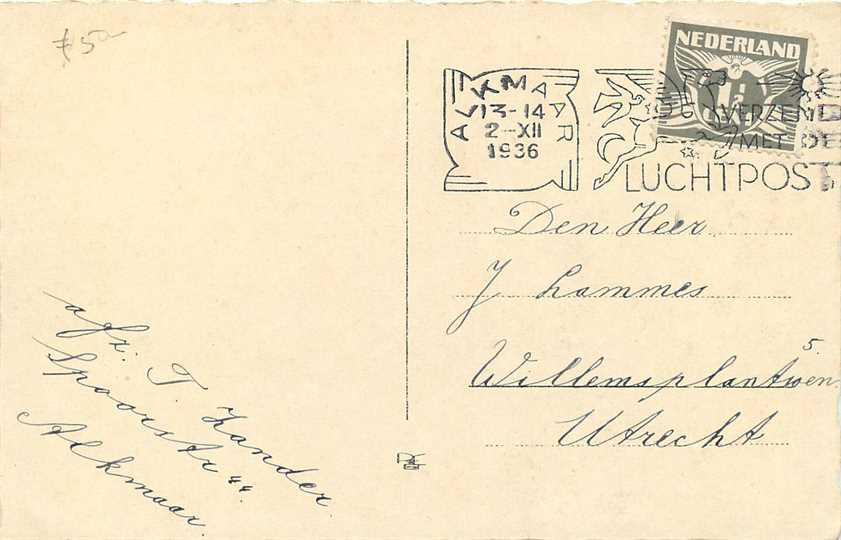 NEDERLAND
ALKMAAR
13-14
2-XII
1936
VERZEND
MET DE
LUCHTPOST
Den Heer
J Lammes
5.
Willemsplantsoen
Utrecht
afz. T. Zander
Spoorstr 44.
Alkmaar.